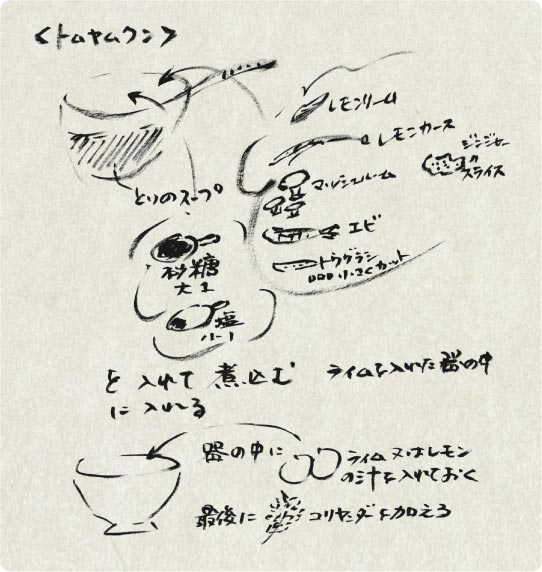 <トムヤムクン>
レモンリーム
レモンガース
ジンジャーの
スライス
マッシュルーム
とりのスープ
エビ
トウガラシ
小さくカット
砂糖
大1
塩
小1
を入れて煮込む
ライムを入れた器の中
に入れる
器の中に
ライム又はレモン
の汁を入れておく
最後に
コリヤンダーを加える